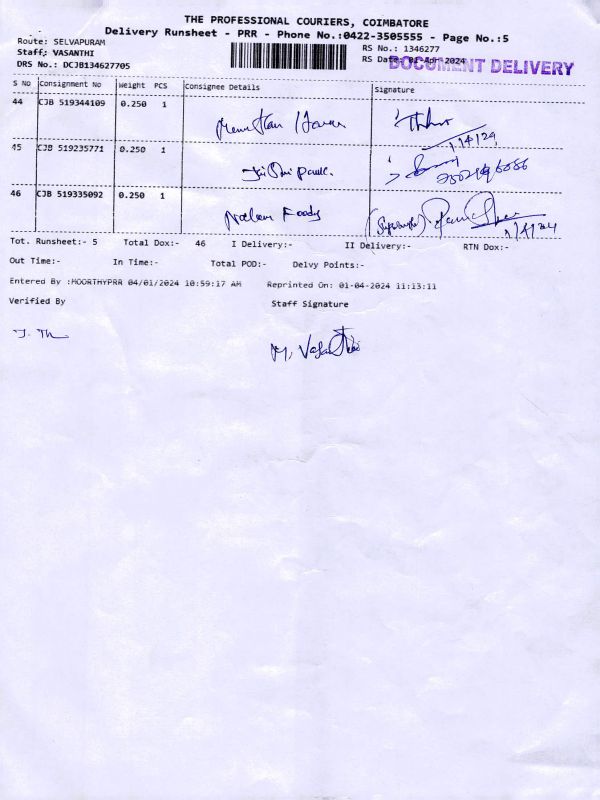 THE PROFESSIONAL COURIERS, COIMBATORE
Delivery Runsheet - PRR - Phone No.:0422-3505555 - Page No.:5
Route: SELVAPURAM
RS No.: 1346277
Staff: VASANTHI
RS Date: 01-Apr-2024
DOCUMENT DELIVERY
DRS No.: DCJB134627705
S No Consignment No Weight PCS Consignee Details Signature
44 CJB 519344109 0.250 1
1/4/24
45 CJB 519235771 0.250 1
46 CJB 519335092 0.250 1 Foods
1/4/24
Tot. Runsheet:- 5 Total Dox:- 46 I Delivery:- II Delivery:- RTN Dox:-
Out Time:- In Time:- Total POD:- Delvy Points:-
Entered By :MOORTHYPRR 04/01/2024 10:59:17 AM Reprinted On: 01-04-2024 11:13:11
Verified By Staff Signature
M. Vasanthi